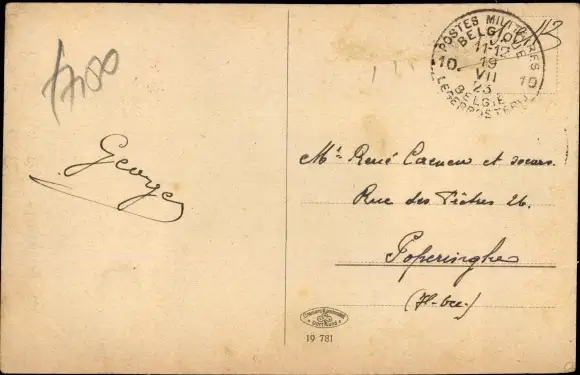 POSTES MILITAIRES
BELGIQUE
11-12
10. 19 10
VII
23
BELGIE
LEGERPOSTERIJ
George
Mr. René et soeurs.
Rue des Prêtres 26.
Poperinghe
(Fl. occ.)
19 781